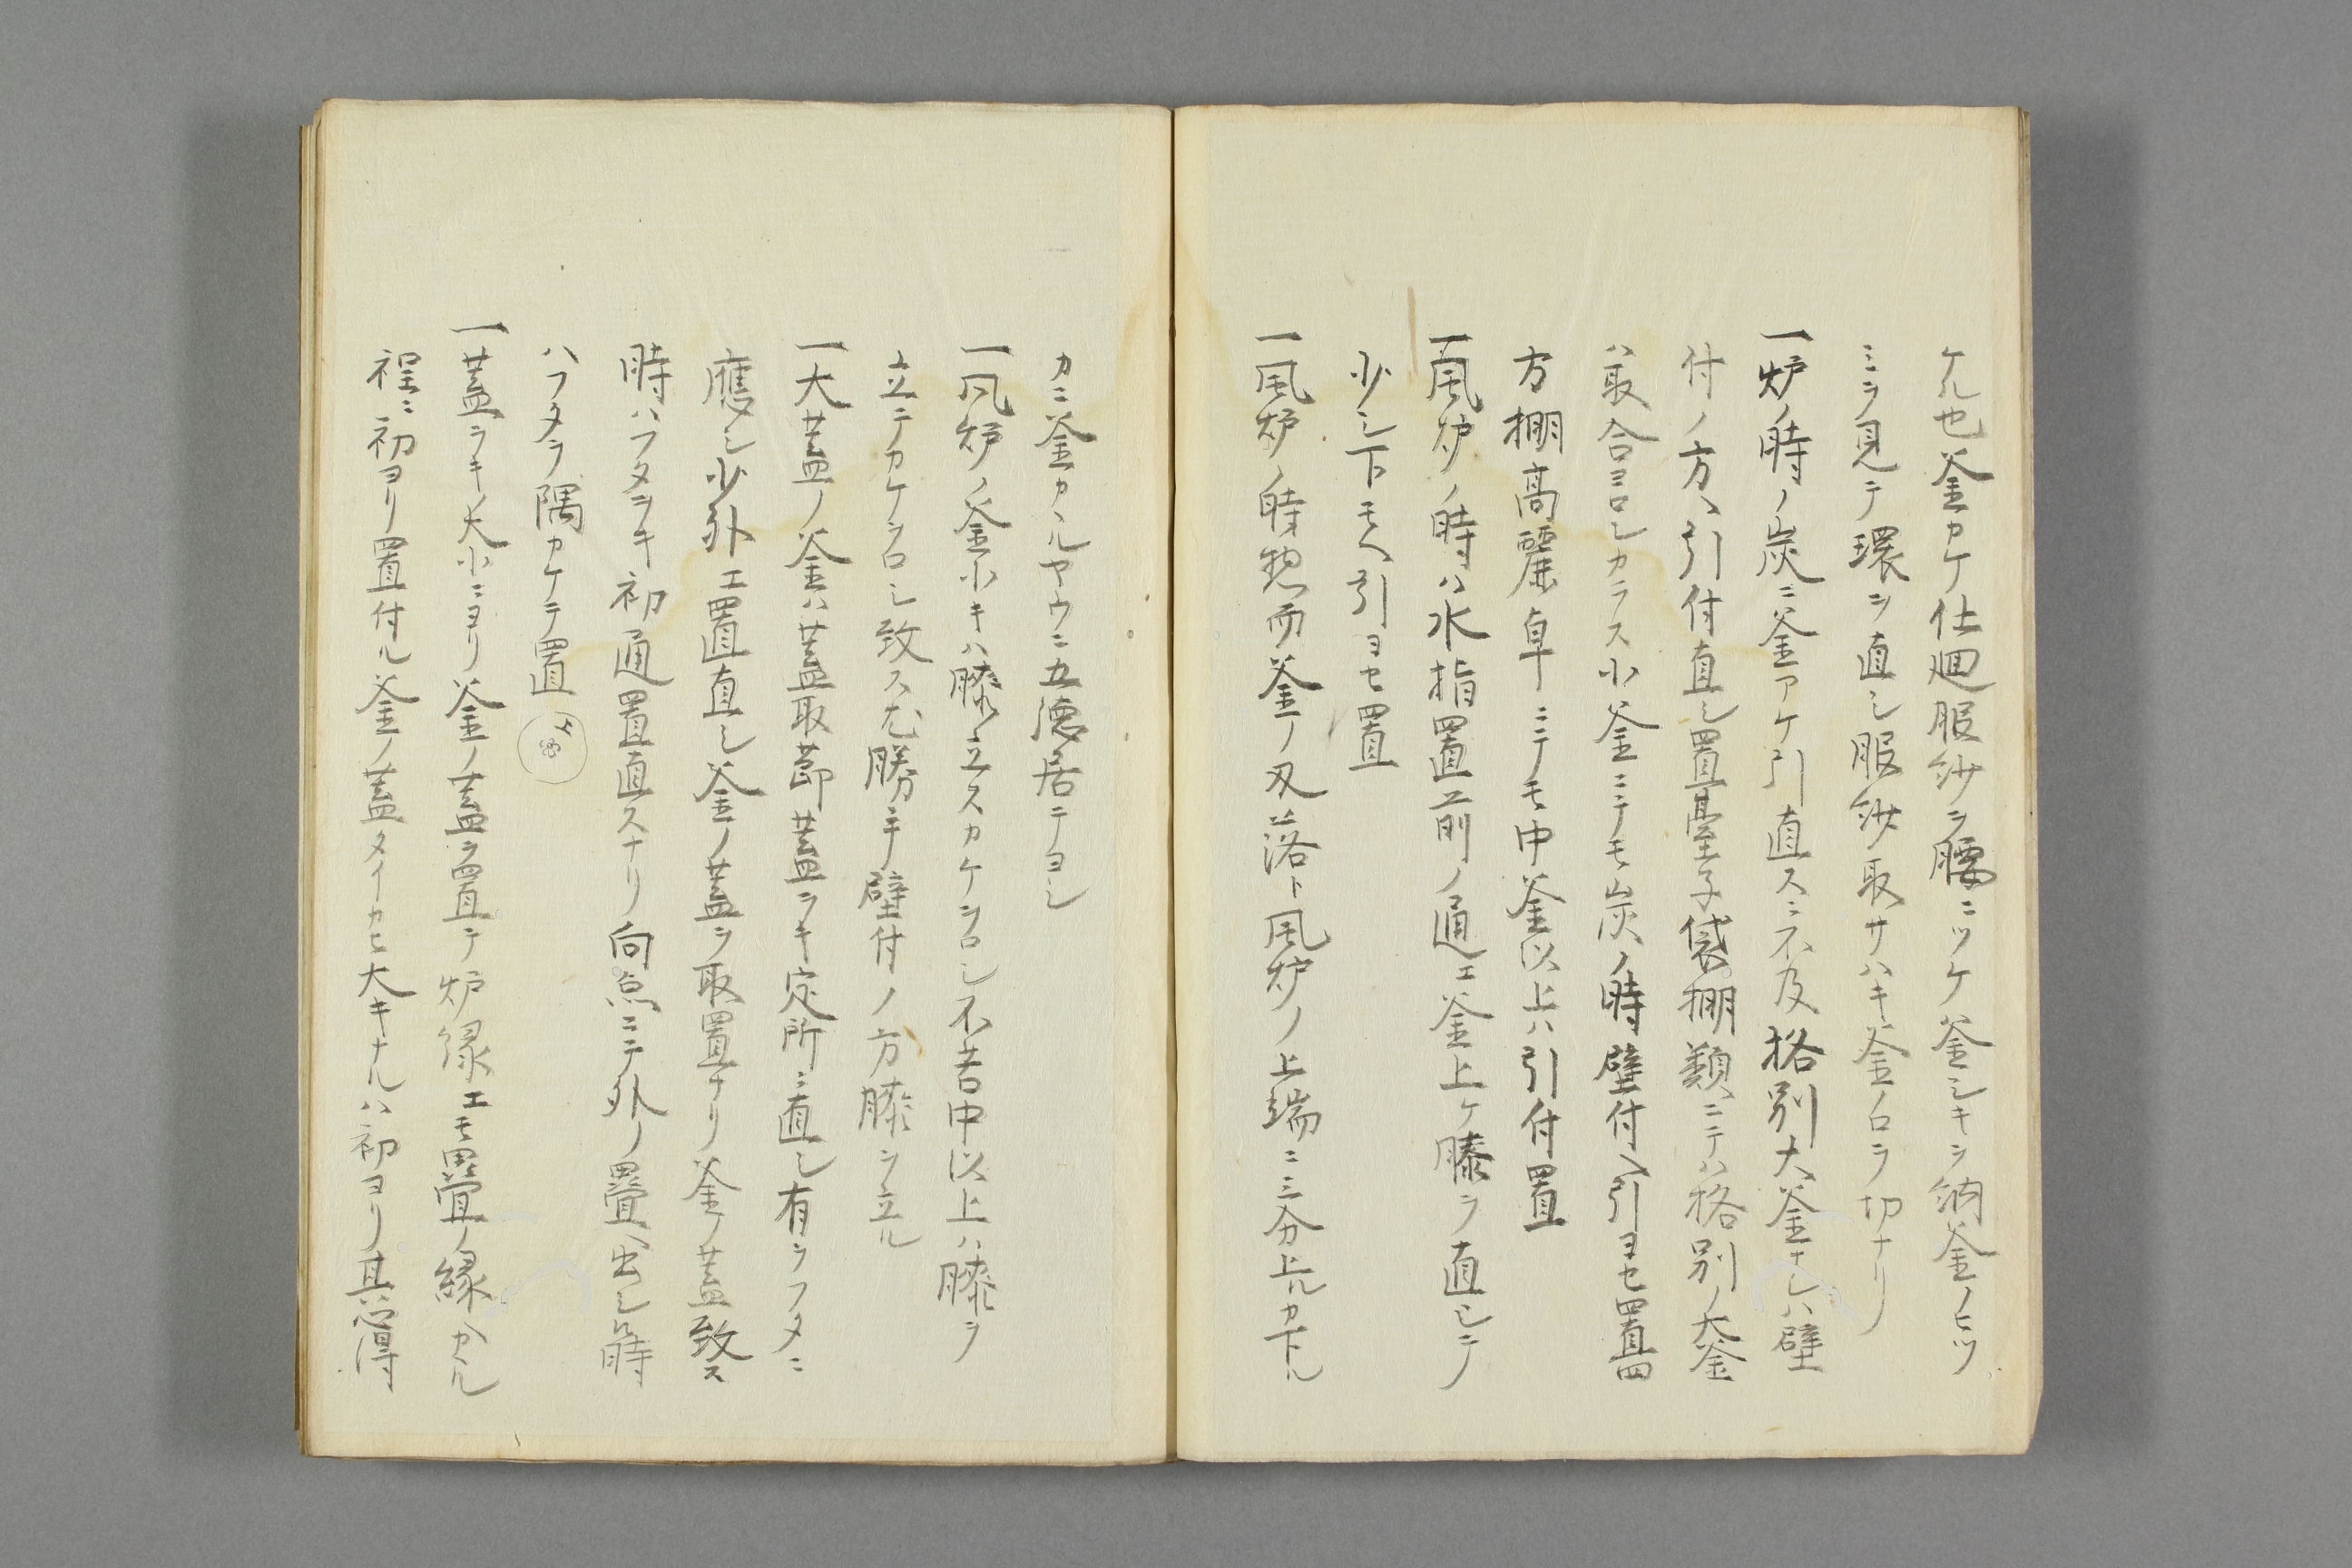 ケル也釜カケ仕廻服紗ヲ腰ニツケ釜シキヲ納釜ノヒツ
ミヲ見テ環ヲ直シ服紗取サハキ釜ノロヲ切ナリ
一炉ノ時ノ炭ニ釜アケ引直スニ不及格別大釜ナレハ壁
付ノ方ヘ引付直シ置臺子袋棚類ニテハ格別ノ大釜
ハ取合ヨロシカラス小釜ニテモ炭ノ時壁付ヘ引ヨセ置四
方棚高麗卓ニテモ中釜以上ハ引付置
一風炉ノ時ハ水指置前ノ通エ釜上ケ膝ヲ直シテ
少シ下モヘ引ヨセ置
一風炉ノ時惣而釜ノ刄落ト風炉ノ上端ニ三分上ルカ下ル
カニ釜カヽルヤウニ五徳居テヨシ
一風炉ノ釜小キハ膝立スカケヲロシ不苦中以上ハ膝ヲ
立テカケヲロシ致ス尤勝手壁付ノ方膝ヲ立ル
一大蓋ノ釜ハ蓋取節蓋ヲキ定所ニ直シ有ヲフタニ
應シ少外エ置直シ釜ノ蓋ヲ取置ナリ釜ノ蓋致ス
時ハフタヲキ初通置直スナリ向点ニテ外ノ疊ヘ出シ時
ハフタヲ隅カケテ置
一蓋ヲキノ大小ニヨリ釜ノ蓋ヲ置テ炉縁エモ疊ノ縁ヘカヽル
程ニ初ヨリ置付ル釜ノ蓋タイカヒ大キナルハ初ヨリ其心得